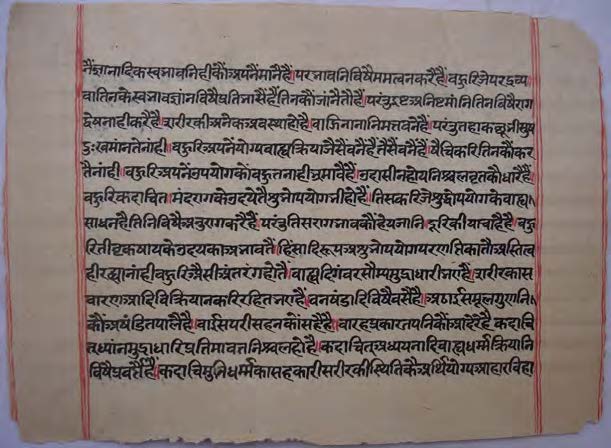 नैं ज्ञानादिक स्वभावनिहीकौं अपनैं मानैं हैं। परभावनिविषै ममत्व न करै हैं। बहुरि जे परद्रव्य
वा तिनके स्वभाव ज्ञानविषै प्रतिभासै हैं तिनकौं जांनै तौ हैं। परंतु इष्ट अनिष्ट मांनि तिनविषै राग
द्वेष नाही करै हैं। शरीरकी अनेक अवस्था हो है। बाह्य नाना निमित्त बनै हैं। परंतु तहां कछू भी सुष
दुःख मांनते नांही। बहुरि अपनैं योग्य बाह्यक्रिया जैसैं बनै हैं तैसैं बनैं हैं। षैंचिकरि तिनकौं कर
ते नांही। बहुरि अपनें उपयोगकौं बहुत नाही भ्रमावैं हैं। उदासीन होय निश्चल वृत्तकौं धारैं हैं।
बहुरि कदाचित मंदरागके उदयतैं शुभोपयोग भी हो है। तिसकरि जे शुद्धोपयोगके बाह्य
साधन हैं तिनिविषै अनुराग करै हैं। परंतु तिस रागभावकौं हेय जांनि दूरि कीया चाहै हैं। बहु
रि तीव्र कषायके उदयका अभावतैं हिंसादिरूप अशुभोपयोग परणतिका तौ अस्तित्व
ही रह्या नांही। बहुरि ऐसी अंतरंग होतैं। बाह्य दिगंबर सौम्यमुद्राधारी भए हैं। शरीरका स
वारणा आदि विक्रियानकरि रहित भए हैं। वनषंडादिविषै वसै हैं। अठाईस मूलगुणनि
कौं अषंडित पालै हैं। बाईस परीसहनकौं सहै हैं। बारह प्रकार तपनिकौं आदरै हैं। कदाचि
त् ध्यांनमुद्राधारि प्रतिमावत निश्चल हो है। कदाचित् अध्ययनादि बाह्य धर्मक्रियानि
विषै प्रवर्त्तैं हैं। कदाचि मुनिधर्मका सहकारी सरीरकी स्थितिकै अर्थि योग्य आहार विहा